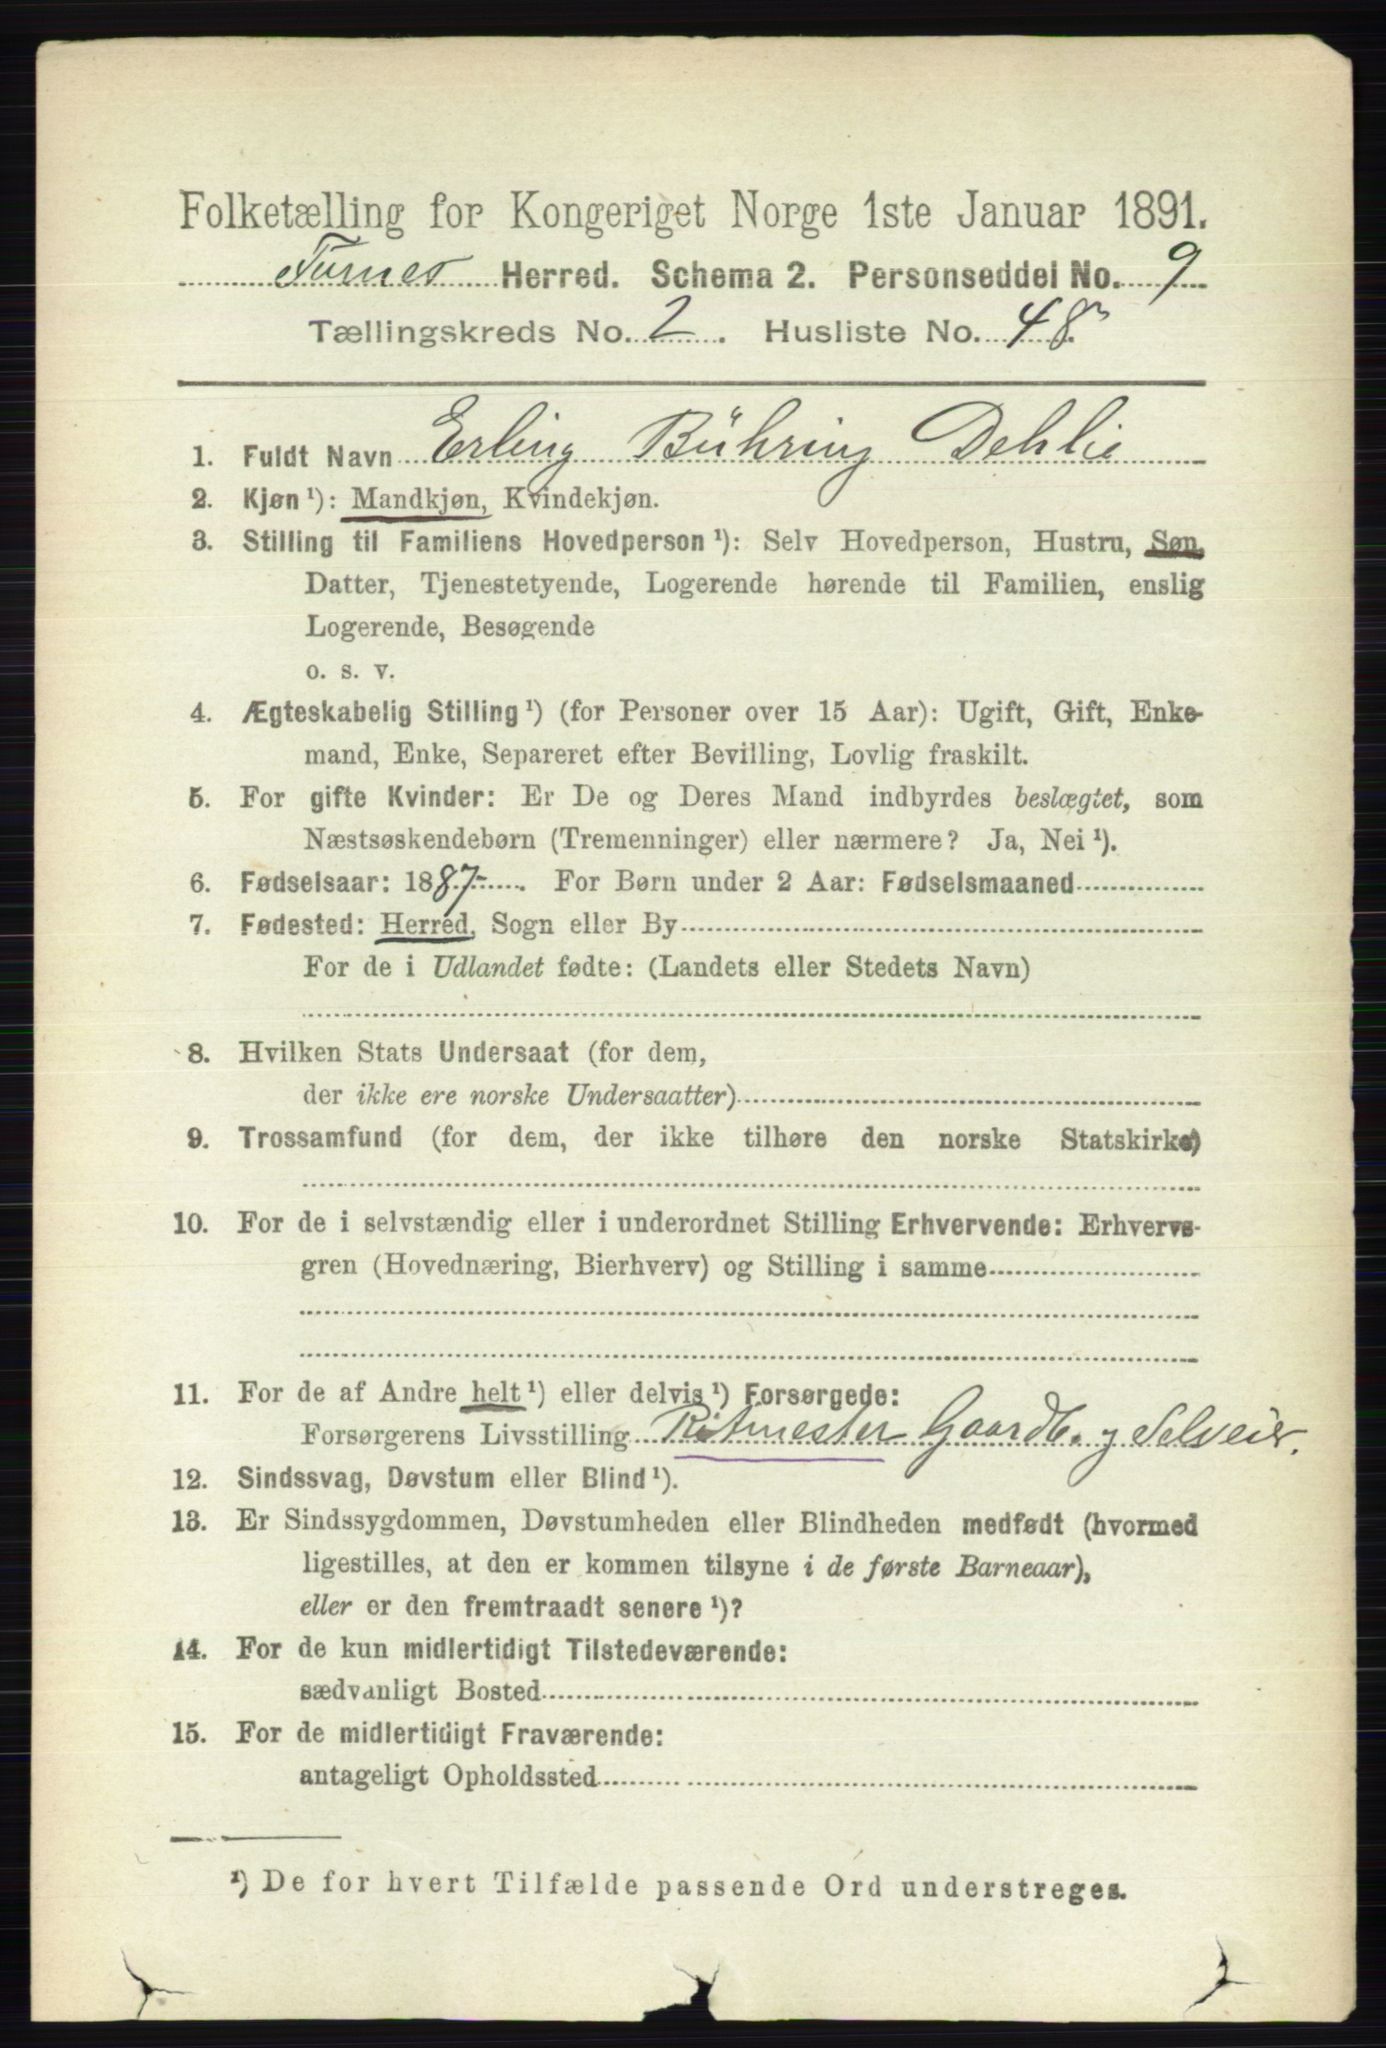 Folketælling for Kongeriget Norge 1ste Januar 1891.
Furnes Herred. Schema 2. Personseddel No. 9
Tællingskreds No. 2. Husliste No. 48.
1. Fuldt Navn Erling Bühring Dehlie
2. Kjøn ¹): Mandkjøn, Kvindekjøn.
3. Stilling til Familiens Hovedperson ¹): Selv Hovedperson, Hustru, Søn,
Datter, Tjenestetyende, Logerende hørende til Familien, enslig
Logerende, Besøgende
o. s. v.
4. Ægteskabelig Stilling ¹) (for Personer over 15 Aar): Ugift, Gift, Enke-
mand, Enke, Separeret efter Bevilling, Lovlig fraskilt.
5. For gifte Kvinder: Er De og Deres Mand indbyrdes beslægtet, som
Næstsøskendebørn (Tremenninger) eller nærmere? Ja, Nei ¹).
6. Fødselsaar: 1887. For Børn under 2 Aar: Fødselsmaaned
7. Fødested: Herred, Sogn eller By
For de i Udlandet fødte: (Landets eller Stedets Navn)
8. Hvilken Stats Undersaat (for dem,
der ikke ere norske Undersaatter)
9. Trossamfund (for dem, der ikke tilhøre den norske Statskirke)
10. For de i selvstændig eller i underordnet Stilling Erhvervende: Erhvervs-
gren (Hovednæring, Bierhverv) og Stilling i samme
11. For de af Andre helt ¹) eller delvis ¹) Forsørgede:
Forsørgerens Livsstilling Ritmester Gaardb. og Selveier.
12. Sindssvag, Døvstum eller Blind ¹).
13. Er Sindssygdommen, Døvstumheden eller Blindheden medfødt (hvormed
ligestilles, at den er kommen tilsyne i de første Barneaar),
eller er den fremtraadt senere ¹)?
14. For de kun midlertidigt Tilstedeværende:
sædvanligt Bosted
15. For de midlertidigt Fraværende:
antageligt Opholdssted
¹) De for hvert Tilfælde passende Ord understreges.